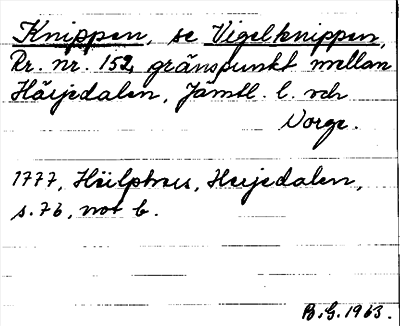 Knippen, se Vigelknippen,
Rr. nr. 152, gränspunkt mellan
Härjedalen, Jämtl. l. och
Norge.
1777, Hülphers, Herjedalen,
s. 76, not b.
B.G. 1963.